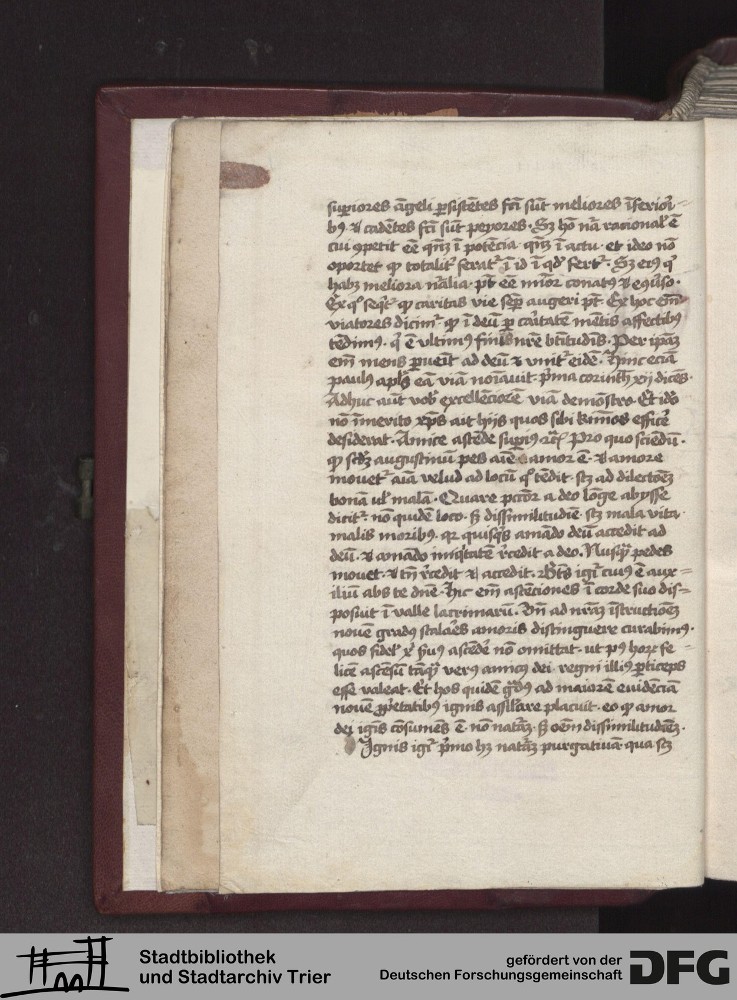 suꝑiores āgeli ꝑsistētes fc̄i sūt meliores īferior̄
bꝰ ⁊ cadētes fc̄i sūt peyores · Sꝫ hō nā racional' ē
cui ꝯpetit eē qn̄ꝫ ī potēcia qn̄ꝫ ī actu · et ideo nō
oportet ꝙ totalit' ferat' ī id ī qd' fert' · Sꝫ eiꝰ q'
habꝫ meliora nālia · pt̄ eē mīor conatꝰ ⁊ eꝯūso ·
Ex qͦ seqt' ꝙ caritas vie semꝑ augeri pt̄ · Ex hoc em̄
viatores dicim' ꝙ ī deū ꝑ cāitatē mētis affectibꝰ
tēdimꝰ · q' ē vltimꝰ finis nr̄e btītudīs · Per ipaꝫ
em̄ mens ꝑueīt ad deū ⁊ vnit' eidē · Hinc eciā
paulꝰ apl's eā viā noīauit · pͥma corinth xij dicēs ·
Adhuc aūt vob' excellēciorē viā demōstro · Et idō
nō īmerito xp̄s ait hijs quos sibi effice'
desiderat · Amice ascēde supiꝰ · Pro quo sciēdū ·
ꝙ scd'ꝫ augustinū pes aīe amor ē · ⁊ amore
mouet' aīa velud ad locū qͦ tēdit · scꝫ ad dilectōeꝫ
bonā ul' malā · Quare pctōr a deo lōge abysse
dicit' · nō quidē loco · sꝫ dissimilitudīe scꝫ mala vita ·
malis moribꝰ · qr quisqꝫ amādo deū accedit ad
deū · ⁊ amādo iniq'tatē r̄cedit a deo · Nusqꝫ pedes
mouet · ⁊ tn̄ r̄cedit ⁊ accedit · Bt̄s igr̄ cuiꝰ ē aux-
iliū abs te dn̄e · Hic em̄ ascēciones ī corde suo dis-
posuit ī valle lacrimarū · Vn̄ ad nr̄aꝫ īstructionēꝫ
nouē gradꝰ scalares amoris distinguere curabimꝰ ·
quos fidel' xͥ ascēde' nō omittat · ut pꝰ horꝫ fe-
licē ascēsū tāqꝫ verꝰ amicꝰ dei · regni illiꝰ ꝑticeps
esse valeat · Et hos quidē gͣdꝰ ad maiorē euidēciā
nouē ꝓpietatibꝰ ignis assil'are placuit · eo ꝙ amor
dei ignis cōsumēs ē · nō natāꝫ · sꝫ oēm dissimilitudīeꝫ ·
Ignis igr̄ pͥmo hꝫ natāꝫ purgatiuā · qua scꝫ
Stadtbibliothek
und Stadtarchiv Trier
gefördert von der
Deutschen Forschungsgemeinschaft
DFG